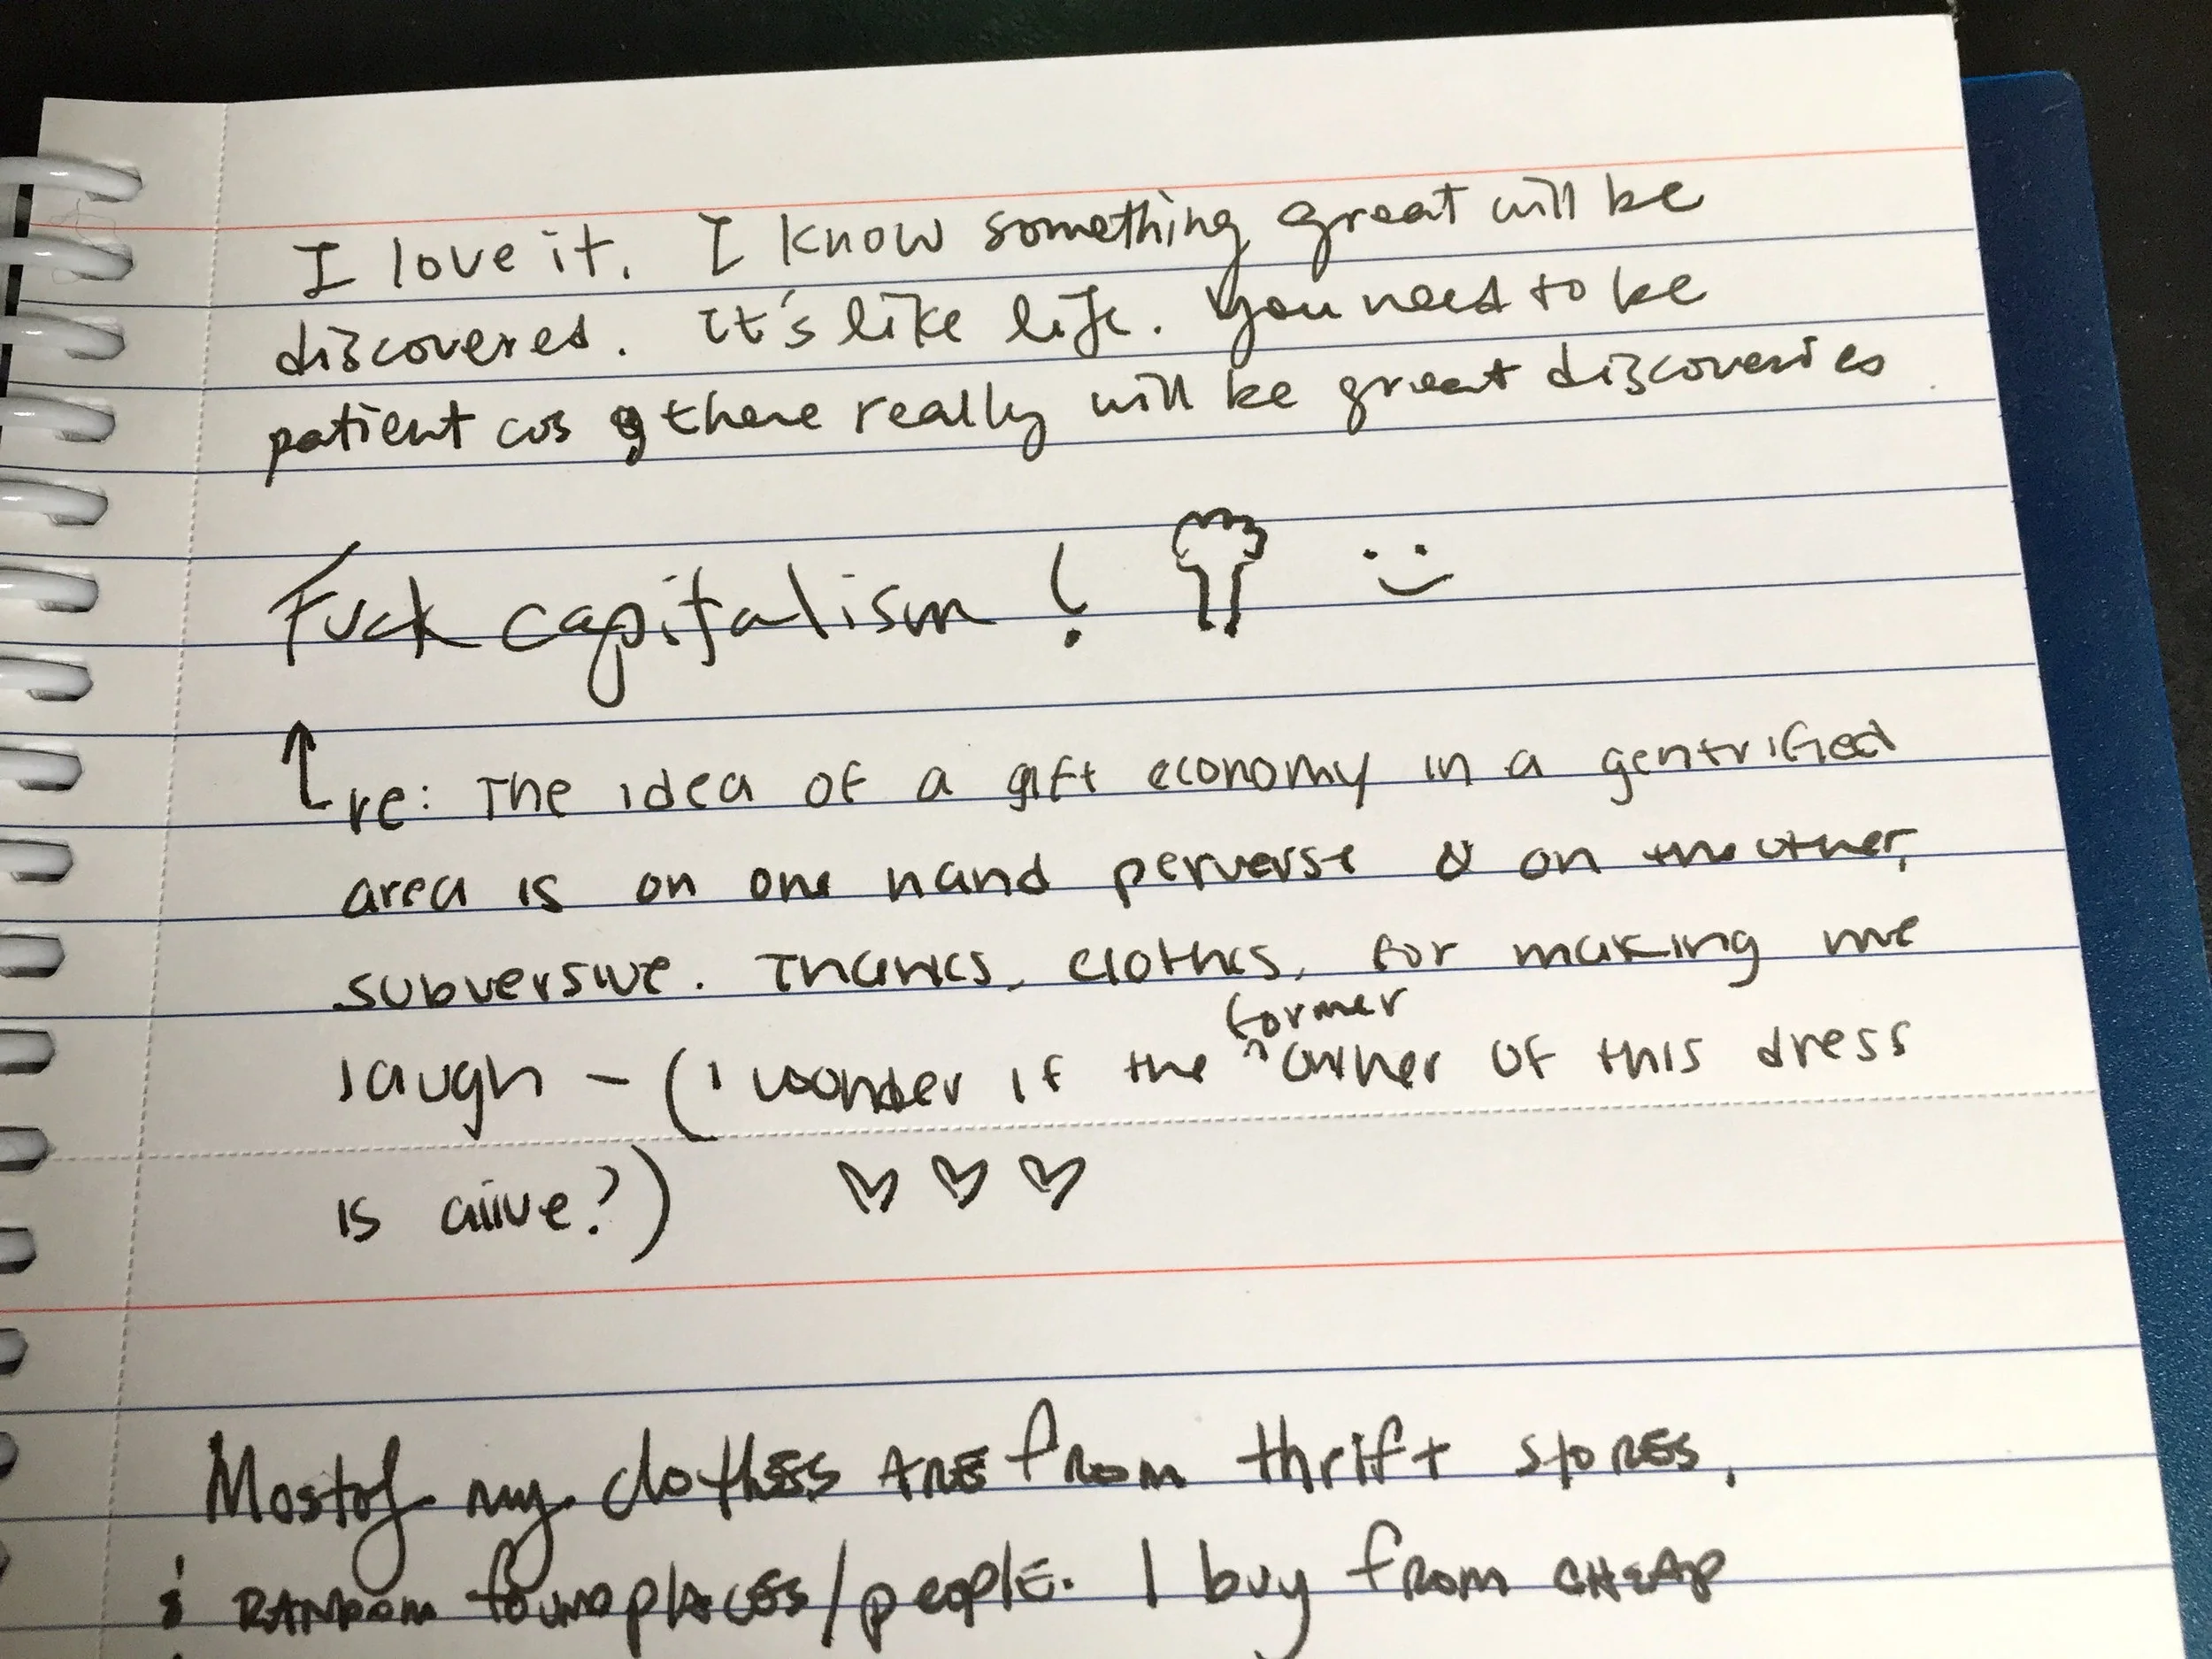 I love it. I know something great will be
discovered. It's like life. You need to be
patient cos there really will be great discoveries
Fuck capitalism!
re: The idea of a gift economy in a gentrified
area is on one hand perverse & on the other,
subversive. Thanks, clothes, for making me
laugh – (I wonder if the former owner of this dress
is alive?)
Most of my clothes ARE from thrift stores,
& RANDOM found places/people. I buy from CHEAP